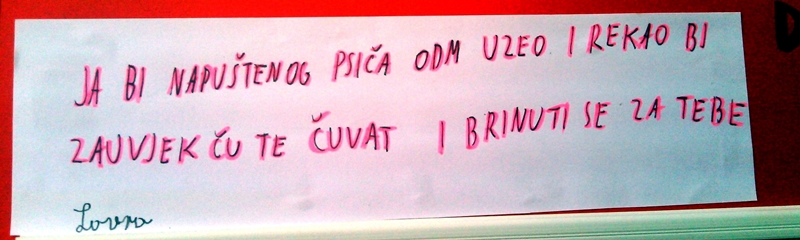 JA BI NAPUŠTENOG PSIČA ODM UZEO I REKAO BI
ZAUVJEK ČU TE ČUVAT I BRINUTI SE ZA TEBE
Lovro